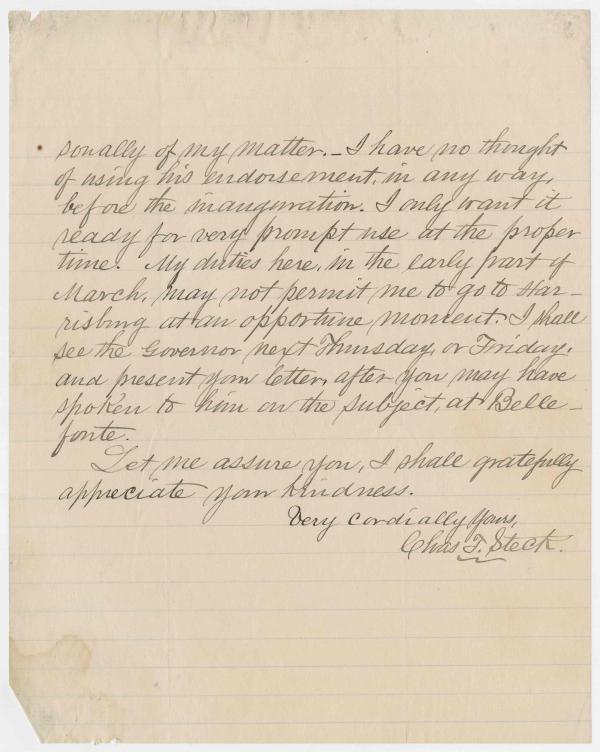 sonally of my matter. - I have no thought
of using his endorsement, in any way,
before the inauguration. I only want it
ready for very prompt use at the proper
time. My duties here, in the early part of
March, may not permit me to go to Har-
risburg at an opportune moment. I shall
see the Governor next Thursday, or Friday,
and present your letter, after you may have
spoken to him on the subject, at Belle-
fonte.
Let me assure you, I shall gratefully
appreciate your kindness.
Very cordially Yours,
Chas T. Steck.